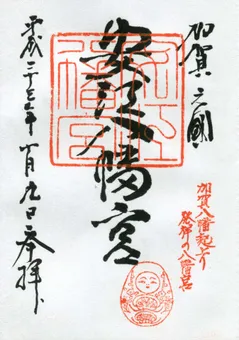 加賀之國
加賀八幡起上り
発祥の八幡宮
安江八幡宮
平成二十三年十月九日奉拝